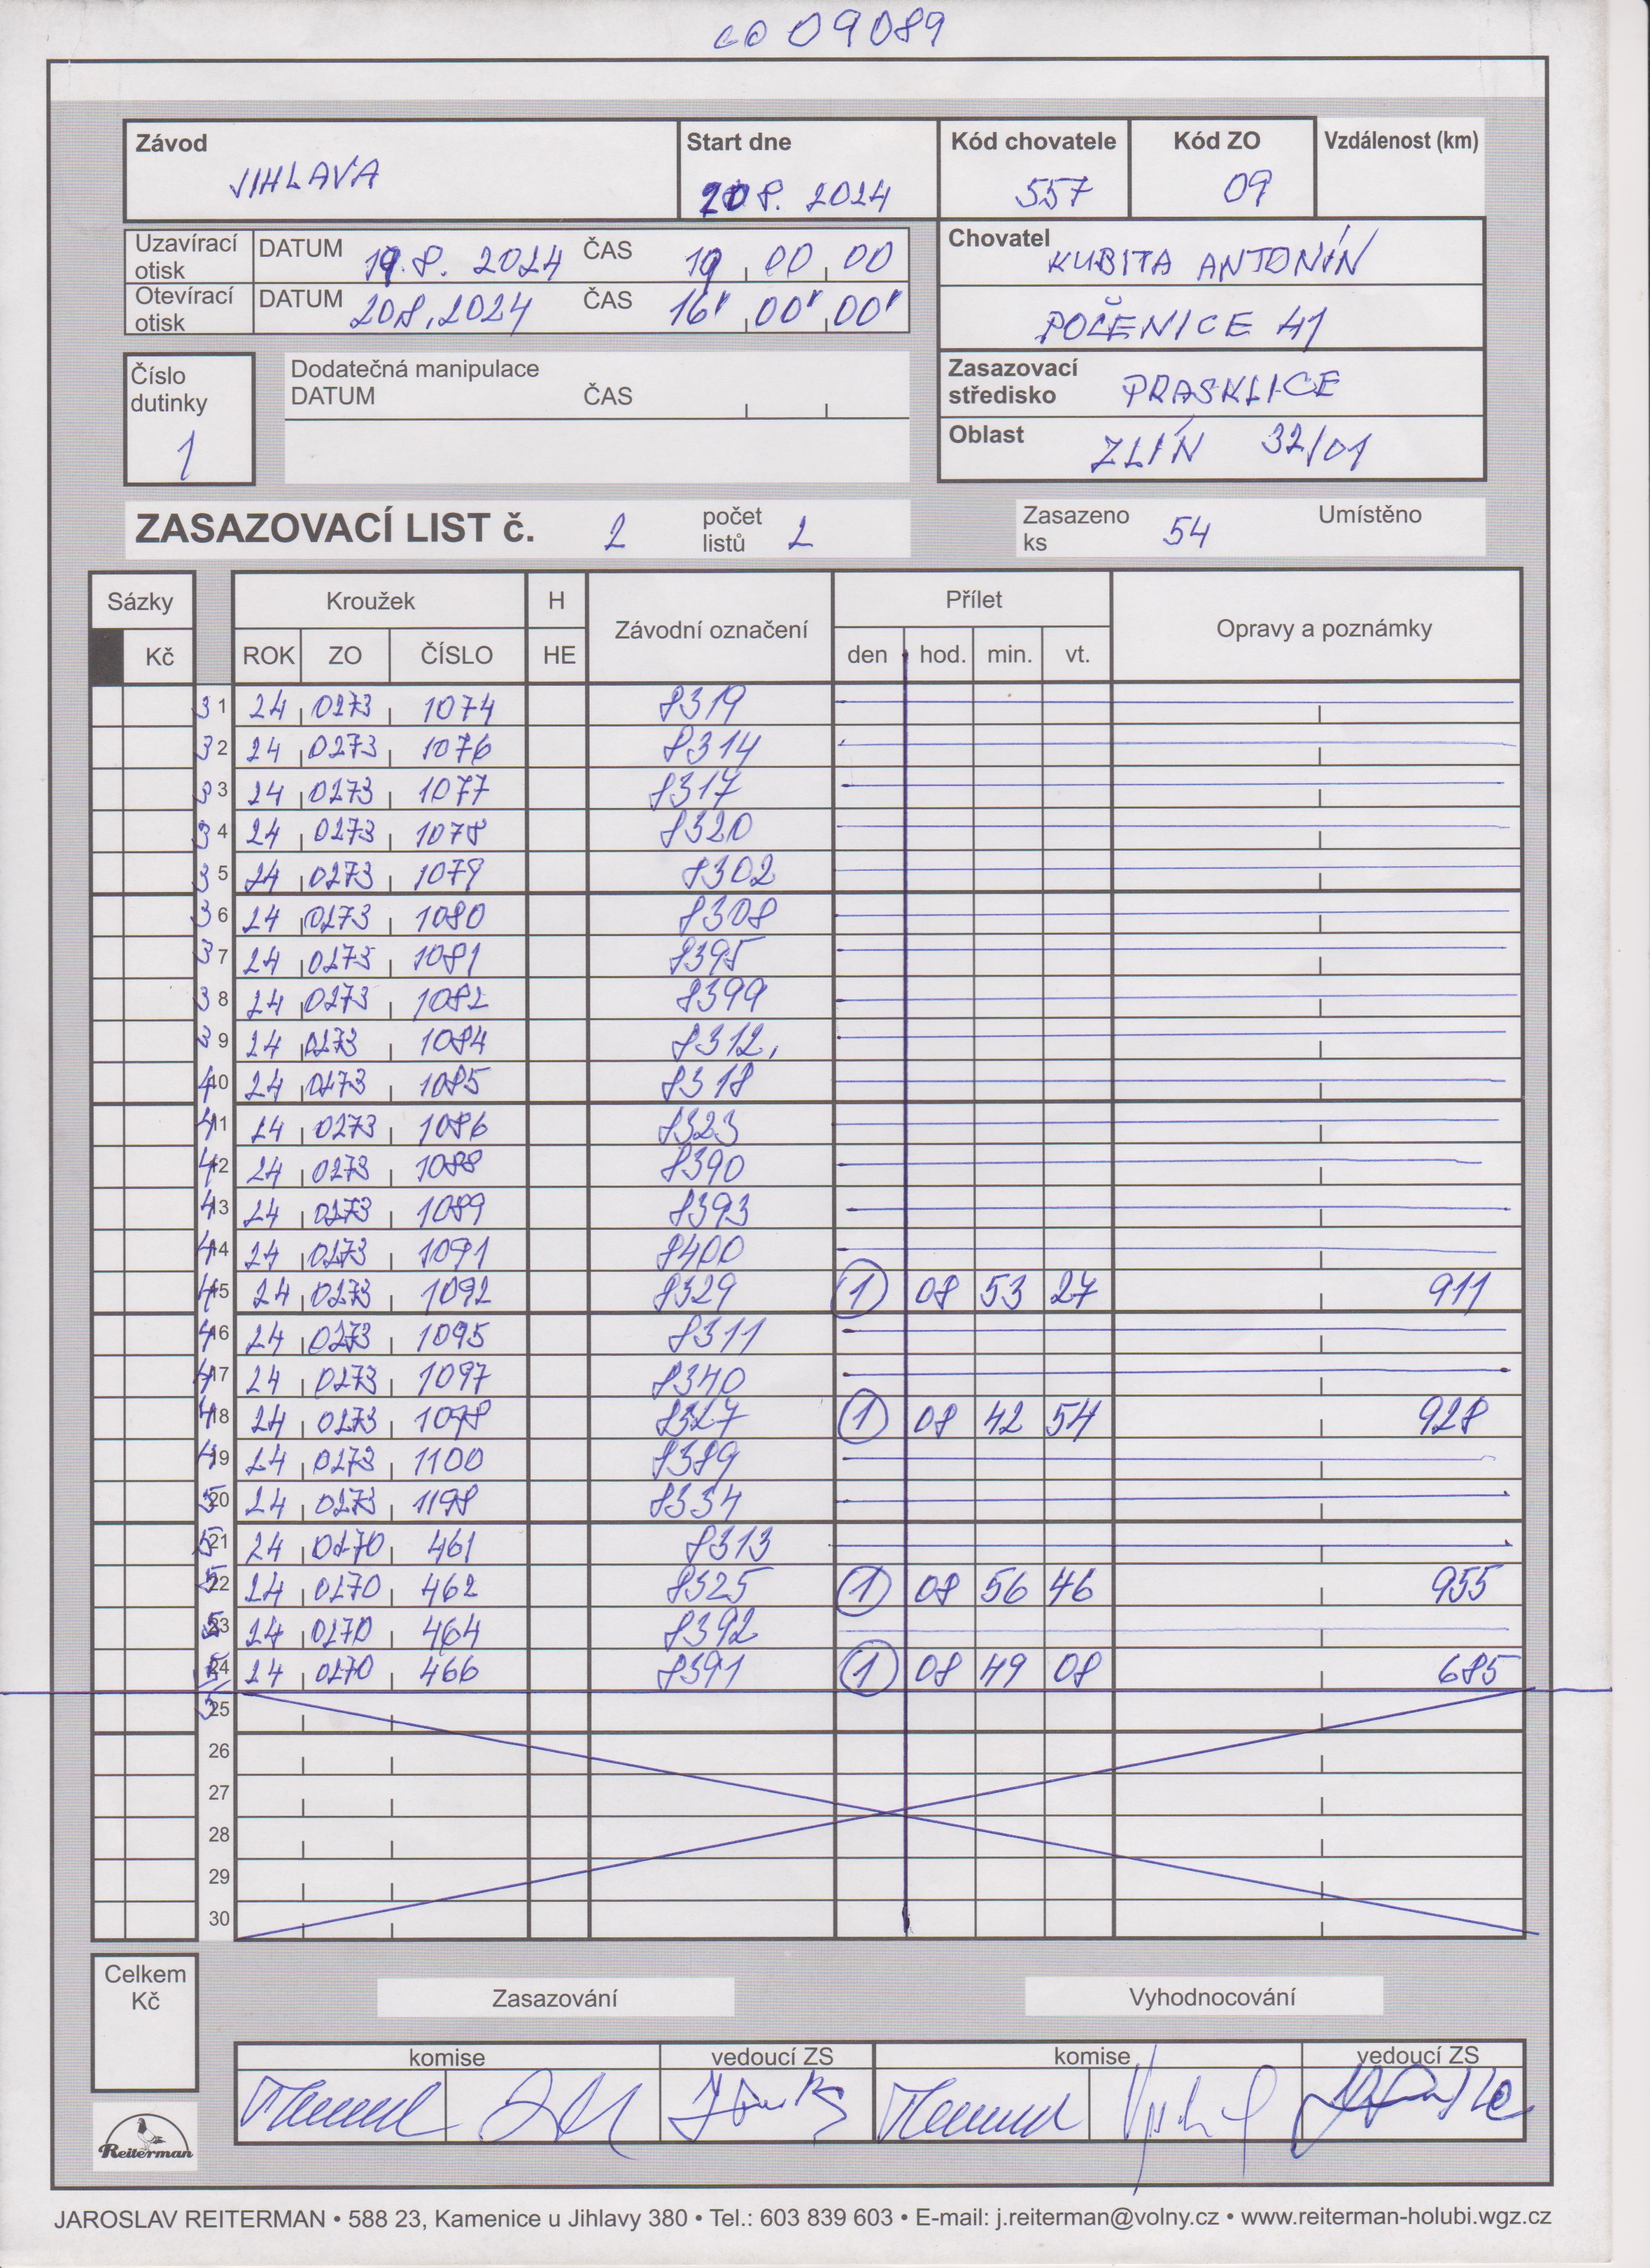 CO 09089
Závod Start dne Kód chovatele Kód ZO Vzdálenost (km)
JIHLAVA 20 8. 2024 557 09
Uzavírací otisk DATUM 19.8. 2024 ČAS 19 00 00
Otevírací otisk DATUM 20 8. 2024 ČAS 16 00 00
Chovatel KUBITA ANTONÍN
POČENICE 41
Číslo dutinky 1
Dodatečná manipulace
DATUM ČAS
Zasazovací středisko PRASKLICE
Oblast ZLÍN 32/01
ZASAZOVACÍ LIST č. 2 počet listů 2 Zasazeno ks 54 Umístěno
Sázky Kroužek H Závodní označení Přílet Opravy a poznámky
Kč ROK ZO ČÍSLO HE den hod. min. vt.
31 24 0273 1074 8319
32 24 0273 1076 8314
33 24 0273 1077 8317
34 24 0273 1078 8320
35 24 0273 1079 8302
36 24 0273 1080 8308
37 24 0273 1081 8395
38 24 0273 1082 8399
39 24 0273 1084 8312
410 24 0273 1085 8318
411 24 0273 1086 8323
412 24 0273 1088 8390
413 24 0273 1089 8393
414 24 0273 1091 8400
415 24 0273 1092 8329 1 08 53 27 911
416 24 0273 1095 8311
417 24 0273 1097 8340
418 24 0273 1098 8327 1 08 42 54 928
419 24 0273 1100 8389
520 24 0273 1198 8334
521 24 0270 461 8313
522 24 0270 462 8325 1 08 56 46 955
523 24 0270 464 8392
524 24 0270 466 8391 1 08 49 08 685
25
26
27
28
29
30
Celkem Kč Zasazování Vyhodnocování
komise vedoucí ZS komise vedoucí ZS
Reiterman
JAROSLAV REITERMAN • 588 23, Kamenice u Jihlavy 380 • Tel.: 603 839 603 • E-mail: j.reiterman@volny.cz • www.reiterman-holubi.wgz.cz